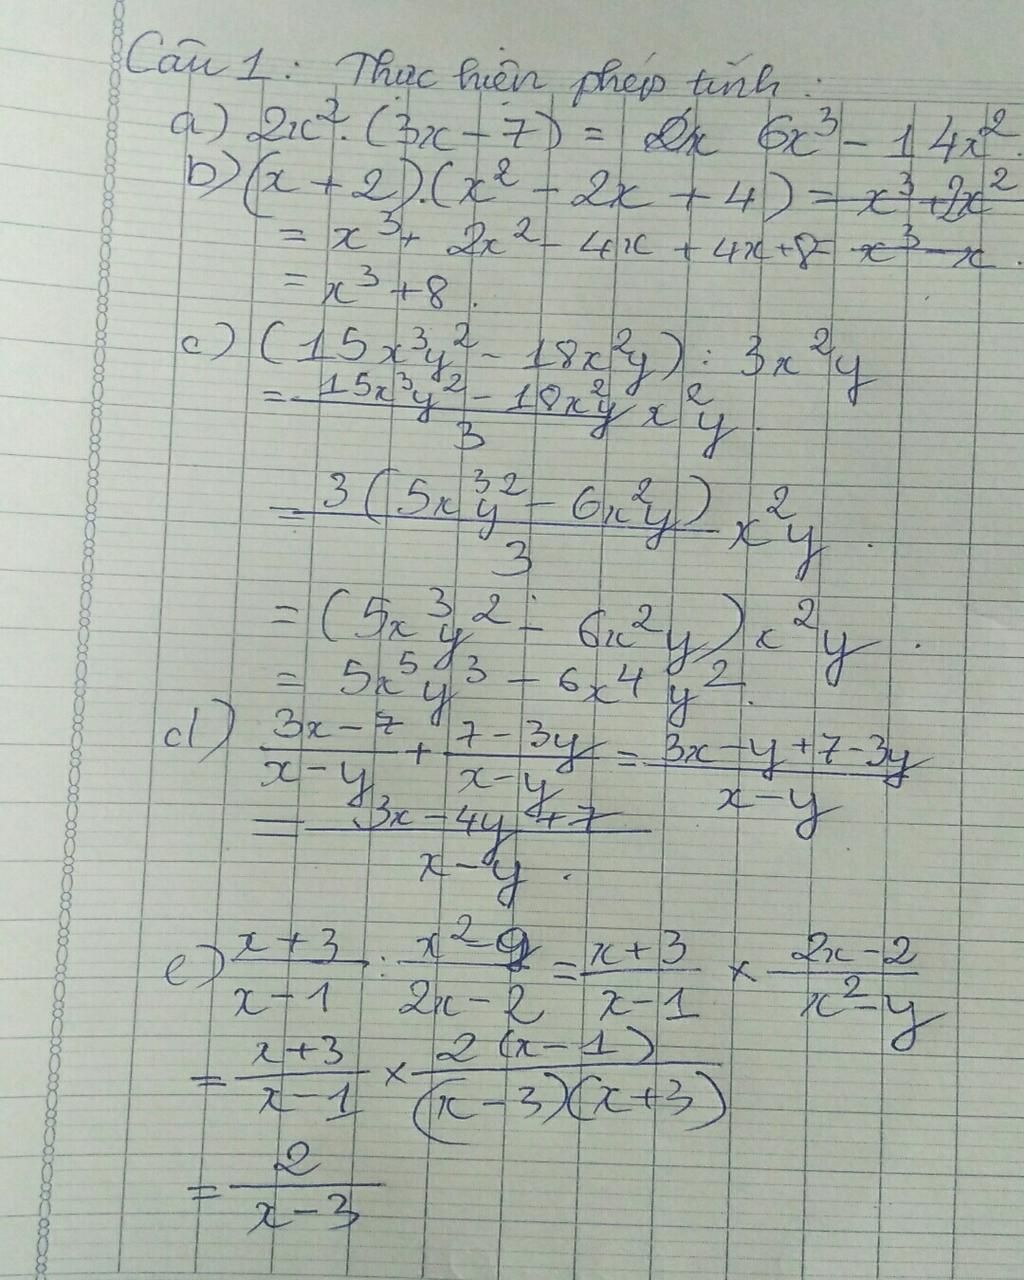 Câu 1: Thực hiện phép tính:
a) 2x². (3x - 7) = 2x 6x³ - 14x².
b) (x + 2).(x² - 2x + 4) = x³ + 2x²
= x³ + 2x² - 4x + 4x + 8 = x³ - x.
= x³ + 8.
c) (15x³y² - 18x²y) : 3x²y
= \frac{15x³y² - 18x²y}{3} x²y.
= \frac{3(5x³y² - 6x²y)}{3} x²y.
= (5x³y² - 6x²y) x²y.
= 5x⁵y³ - 6x⁴y².
d) \frac{3x - 7}{x - y} + \frac{7 - 3y}{x - y} = \frac{3x - y + 7 - 3y}{x - y}
= \frac{3x - 4y + 7}{x - y}.
e) \frac{x + 3}{x - 1} : \frac{x² - 9}{2x - 2} = \frac{x + 3}{x - 1} × \frac{2x - 2}{x² - y}
= \frac{x + 3}{x - 1} × \frac{2(x - 1)}{(x - 3)(x + 3)}
= \frac{2}{x - 3}